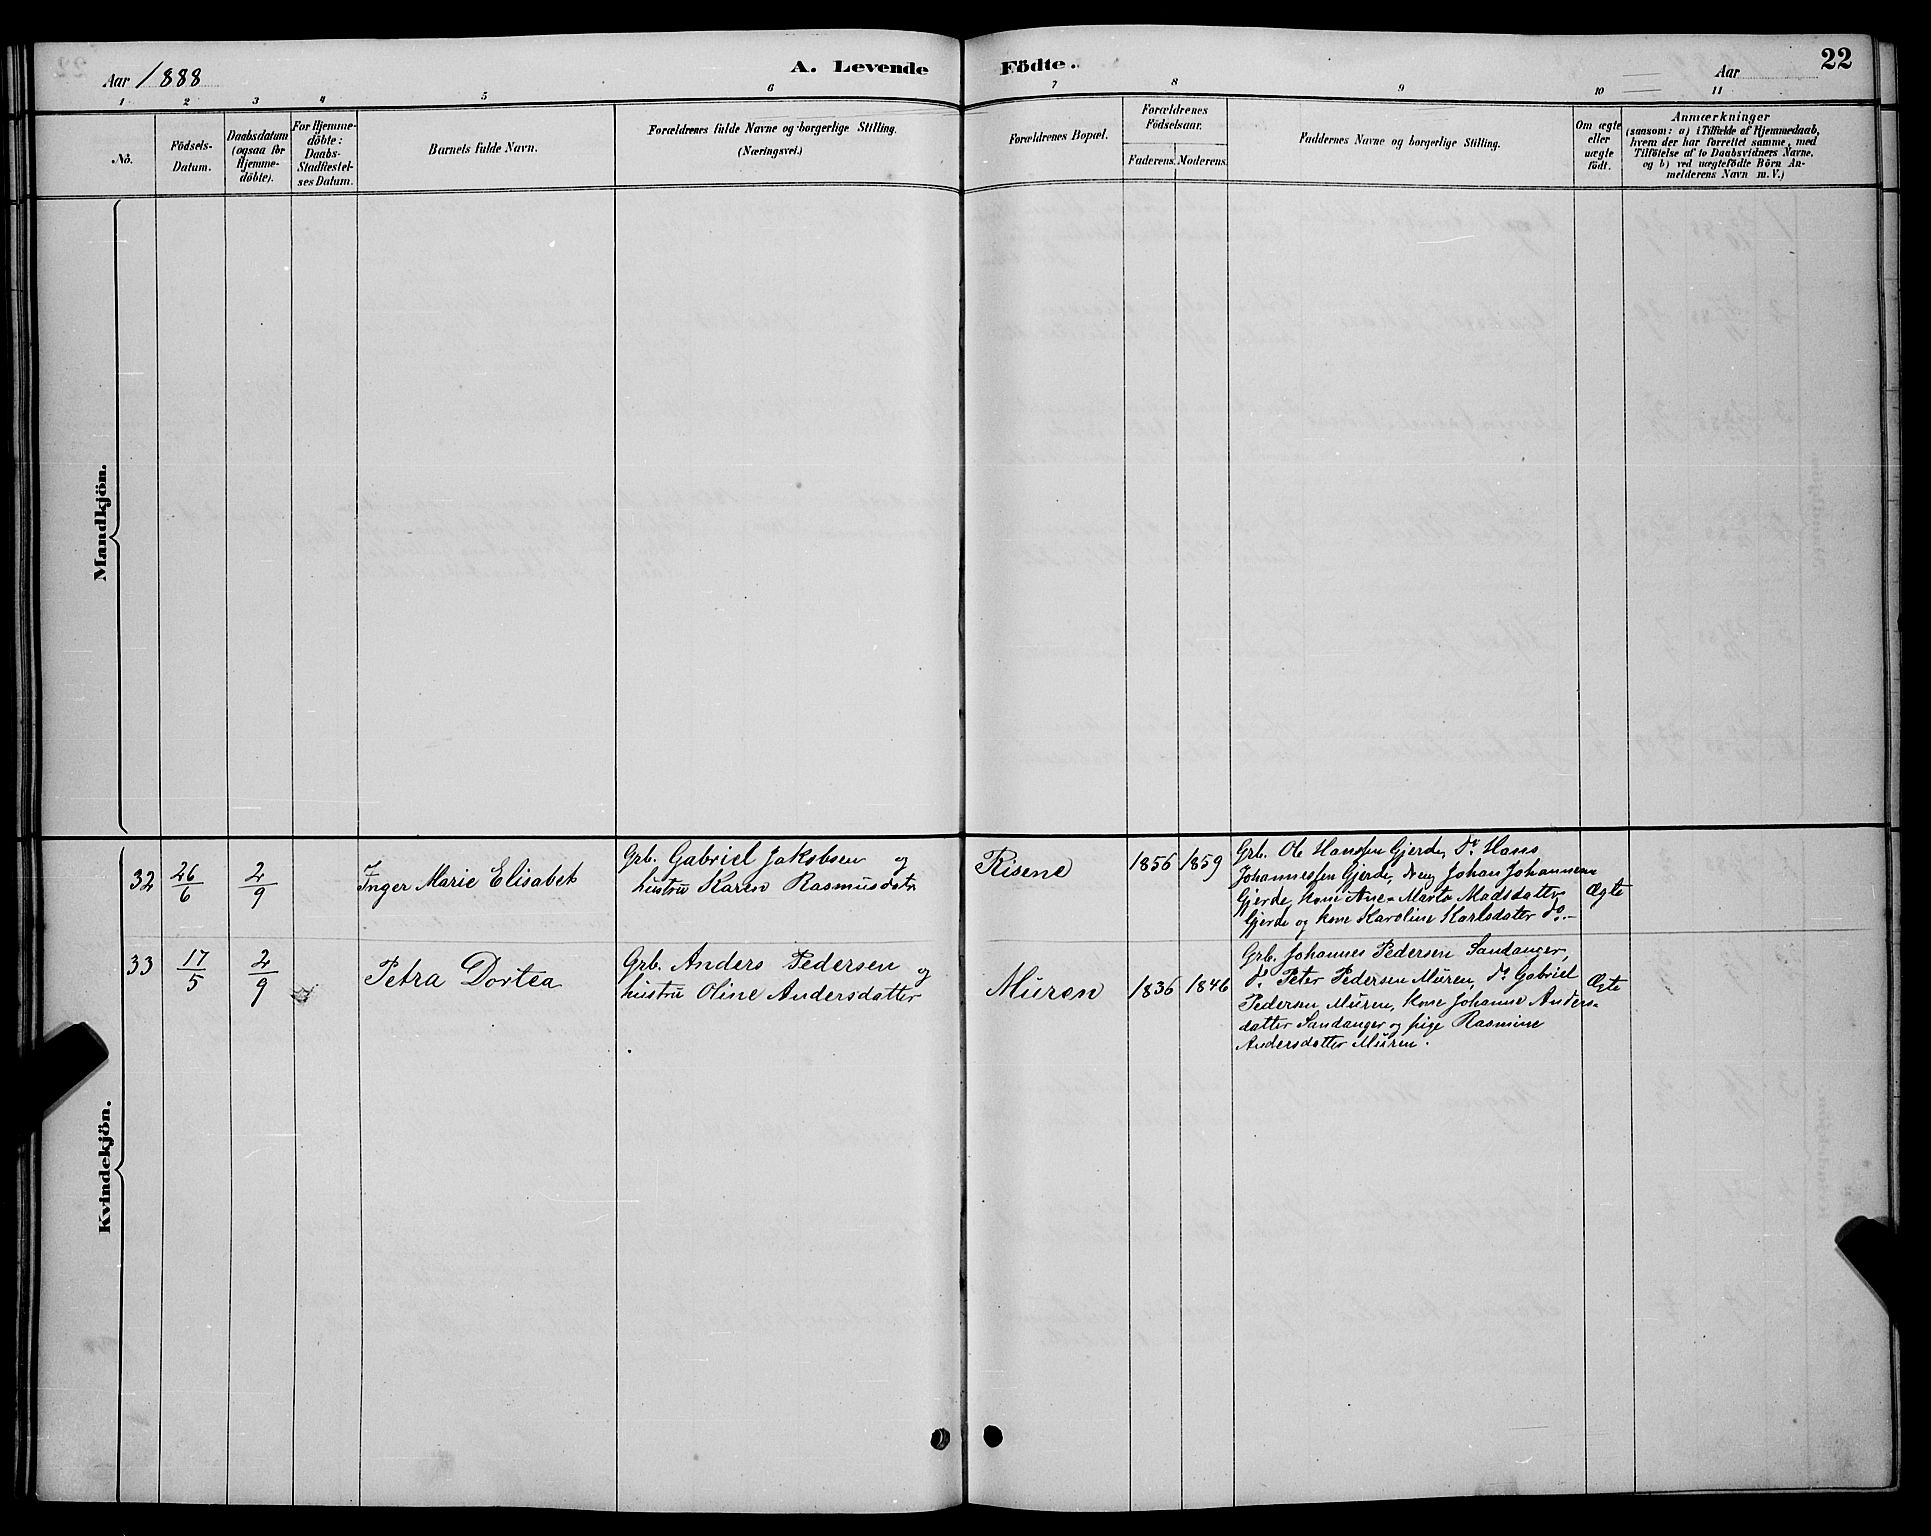 Aar 1888
A. Levende
Födte.
Aar
22
1 2 3 4 5 6 7 8 9 10 11
No.
Födsels-
Datum.
Daabsdatum
(ogsaa for
Hjemme-
döbte).
For Hjemme-
döbte:
Daabs-
Stadfæstel-
ses Datum.
Barnets fulde Navn.
Forældrenes fulde Navne og borgerlige Stilling.
(Næringsvei.)
Forældrenes Bopæl.
Forældrenes
Födselsaar.
Faderens. Moderens.
Faddernes Navne og borgerlige Stilling.
Om ægte
eller
uægte
födt.
Anmærkninger
(saasom: a) i Tilfælde af Hjemmedaab,
hvem der har forrettet samme, med
Tilföielse af to Daabsvidners Navne,
og b) ved uægtefödte Börn An-
melderens Navn m. V.)
Mandkjön.
Kvindekjön.
32 26/6 2/9 Inger Marie Elisabet
Grb. Gabriel Jakobsen og
hustru Karen Rasmusdatr
Risene 1856 1859
Grb. Ole Hanssen Gjerde, do. Hans
Johannessen Gjerde, dreng Johan Johannessen
Gjerde, kone Ane-Marta Madsdatter
Gjerde og kone Karoline Karlsdater do.-
Ægte
33 17/5 2/9 Petra Dortea
Grb. Anders Pedersen og
hustru Oline Andersdatter
Muren 1836 1846
Grb. Johannes Pedersen Sandanger,
do. Peter Pedersen Muren, do. Gabriel
Pedersen Muren, kone Johanne Anders-
datter Sandanger og pige Rasmine
Andersdatter Muren.
Ægte